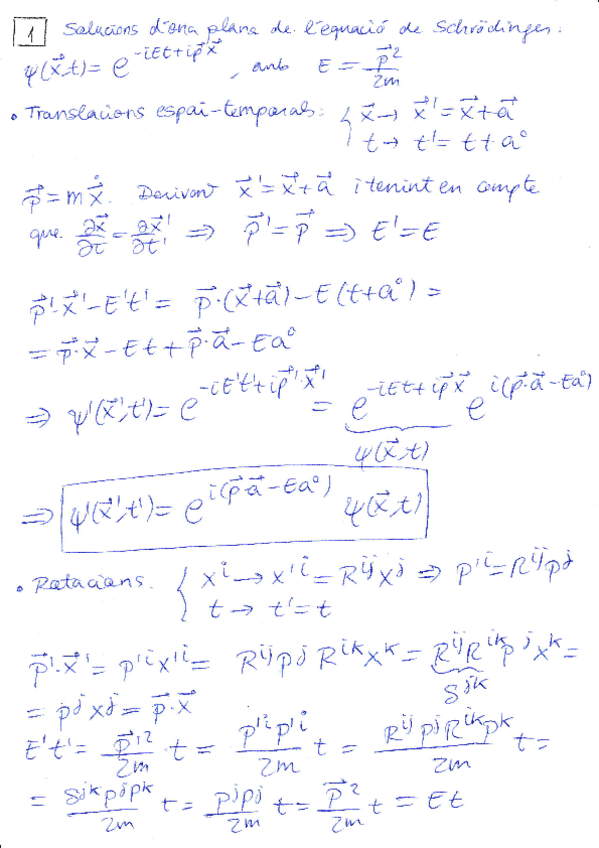 1 Solucions d'ona plana de l'equació de Schrödinger:
ψ(x⃗,t) = e^{-iEt+ip⃗x⃗}, amb E = p⃗²/2m
• Translacions espai-temporals: { x⃗ → x⃗' = x⃗+a⃗
t → t' = t+a⁰
p⃗ = m ẋ⃗. Derivant x⃗' = x⃗+a⃗ i tenint en compte
que ∂x⃗/∂t = ∂x⃗'/∂t' ⇒ p⃗' = p⃗ ⇒ E' = E
p⃗'·x⃗' - E't' = p⃗·(x⃗+a⃗) - E(t+a⁰) =
= p⃗·x⃗ - Et + p⃗·a⃗ - Ea⁰
⇒ ψ'(x⃗',t') = e^{-iE't'+ip⃗'·x⃗'} = e^{-iEt+ip⃗x⃗} e^{i(p⃗·a⃗-Ea⁰)}
ψ(x⃗,t)
⇒ ψ'(x⃗',t') = e^{i(p⃗·a⃗-Ea⁰)} ψ(x⃗,t)
• Rotacions. { xⁱ → x'ⁱ = Rⁱʲxʲ ⇒ p'ⁱ = Rⁱʲpʲ
t → t' = t
p⃗'·x⃗' = p'ⁱx'ⁱ = Rⁱʲpʲ Rⁱᵏxᵏ = RⁱʲRⁱᵏpʲxᵏ =
δʲᵏ
= pʲxʲ = p⃗·x⃗
E't' = p⃗'²/2m · t = p'ⁱp'ⁱ/2m t = RⁱʲpʲRⁱᵏpᵏ/2m t =
= δʲᵏpʲpᵏ/2m t = pʲpʲ/2m t = p⃗²/2m t = Et